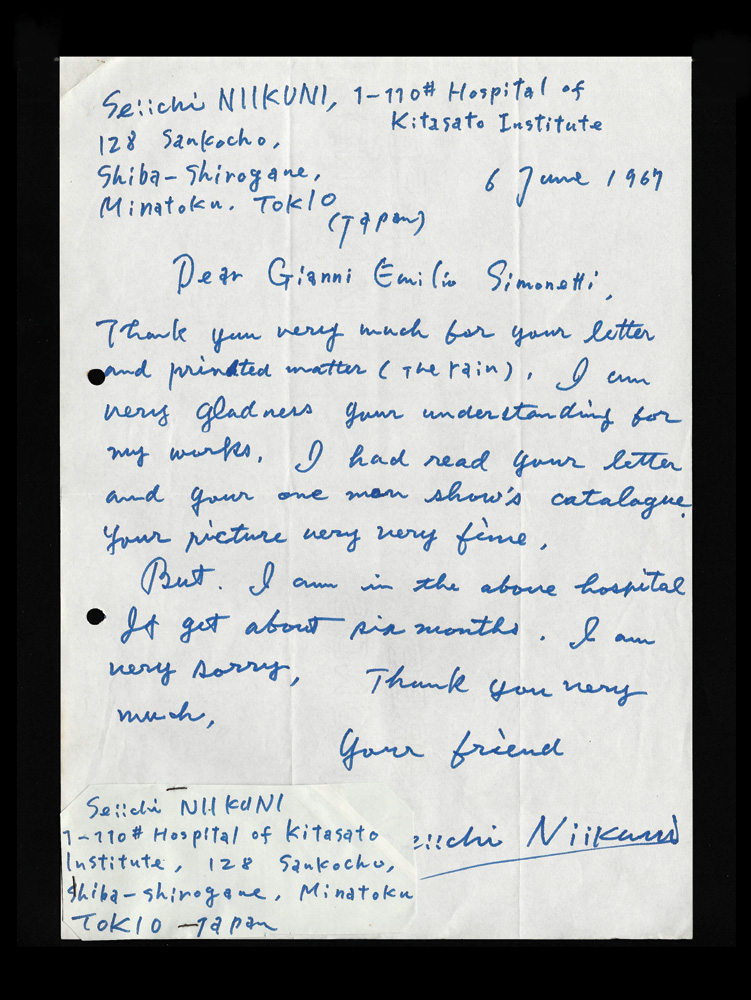 Seiichi NIIKUNI, 1-110# Hospital of
Kitasato Institute
128 Sankocho,
Shiba-Shirogane,
6 June 1967
Minatoku. TOKIO
(Japan)
Dear Gianni Emilio Simonetti,
Thank you very much for your letter
and printed matter (The rain). I am
very gladness your understanding for
my works. I had read your letter
and your one man show's catalogue.
Your picture very very fine.
But. I am in the above hospital
It get about six months. I am
very sorry, Thank you very
much,
Your friend
eiichi Niikuni
Seiichi NIIKUNI
1-110# Hospital of Kitasato
Institute, 128 Sankocho,
Shiba-shirogane, Minatoku
TOKIO - Japan